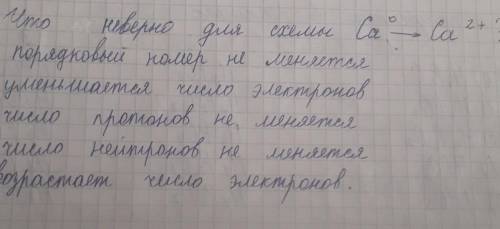 Что неверно для схемы Ca⁰ → Ca²⁺ ?
порядковый номер не меняется
уменьшается число электронов
число протонов не меняется
число нейтронов не меняется
возрастает число электронов.